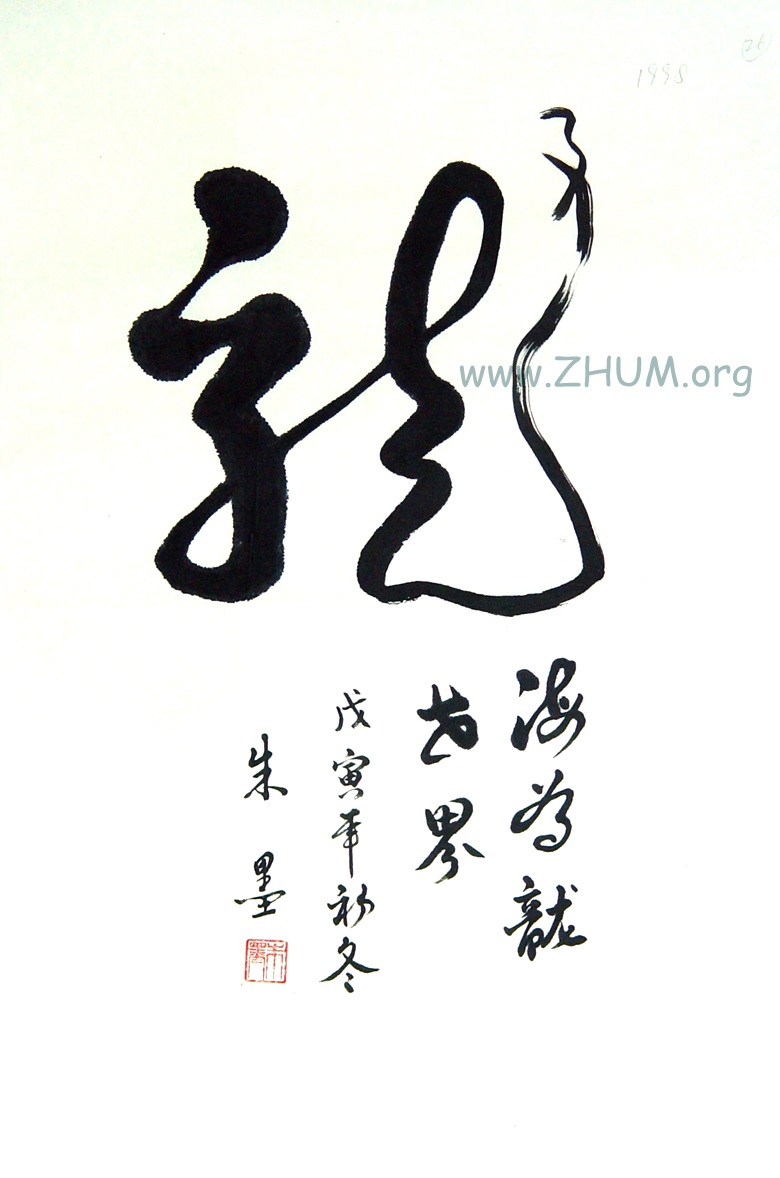 1998
26
龍
www.ZHUM.org
海為龍
世界
戊寅年初冬
朱墨
朱墨